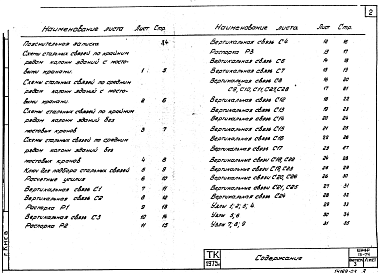 2
Наименование листа Лист Стр.
Пояснительная записка
Схемы стальных связей по крайним
рядам колонн зданий с мосто-
выми кранами 1 5
Схемы стальных связей по средним
рядам колонн зданий с мосто-
выми кранами 2 6
Схемы стальных связей по крайним
рядам колонн зданий без
мостовых кранов 3 7
Схемы стальных связей по средним
рядам колонн зданий без
мостовых кранов 4 8
Ключ для подбора стальных связей 5 9
Расчетные усилия 6 10
Вертикальная связь С1 7 11
Вертикальная связь С2 8 12
Распорка Р1 9 13
Вертикальная связь С3 10 14
Распорка Р2 11 15
Наименование листа Лист Стр.
Вертикальная связь С4 12 16
Распорка Р3 13 17
Вертикальная связь С6 14 18
Вертикальная связь С7 15 19
Вертикальная связь С8 16 20
С9, С10, С11, С27, С28 17 21
Вертикальная связь С12 18 22
Вертикальная связь С13 19 23
Вертикальная связь С14 20 24
Вертикальная связь С15 21 25
Вертикальная связь С16 22 26
Вертикальная связь С17 23 27
Вертикальные связи С18, С22 24 28
Вертикальные связи С19, С23 25 29
Вертикальные связи С20, С26 26 30
Вертикальные связи С21, С25 27 31
Вертикальная связь С24 28 32
Узлы 1, 2, 3, 4 29 33
Узлы 5, 6 30 34
Узлы 7, 8, 9 31 35
ТК
1975
Содержание